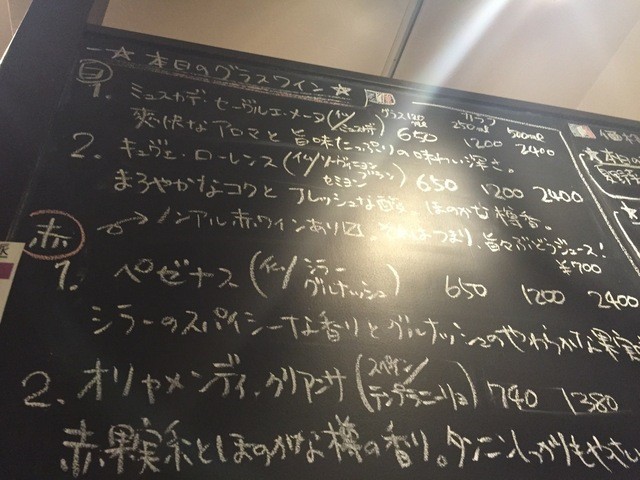 ☆ 本日のグラスワイン ☆
白
グラス120ml 250ml 500ml
1. ミュスカデ・セーヴルエ・メーヌ 650 1200 2400
爽快なアロマと旨味たっぷりの味わい深さ。
2. キュヴェ・ローレンス 650 1200 2400
まろやかなコクとフレッシュな ほのかな樽香。
赤
ノンアル赤ワインあり つまり、ぶどうジュース! ¥700
1. ペゼナス (仏/シラー グルナッシュ) 650 1200 2400
シラーのスパイシーな香りとグルナッシュのやわらかな果実
2. オリャメンディ・クリアンサ (スペイン/テンプラニーリョ) 740 1380
赤果実系とほのかな樽の香り。タンニンしっかりもやさしい
本日の